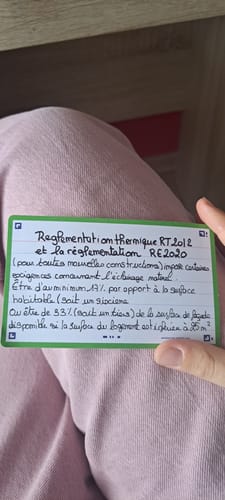 Reglementation thermique RT2012
et la réglementation RE2020
(pour toutes nouvelles constructions) impose certaines
exigences concernant l'éclairage naturel.
Être d'au minimum 17% par apport à la surface
habitable (soit un sixième
Ou être de 33% (soit un tiers) de la surface de façade
disponible si la surface du logement est inférieure à 25 m².